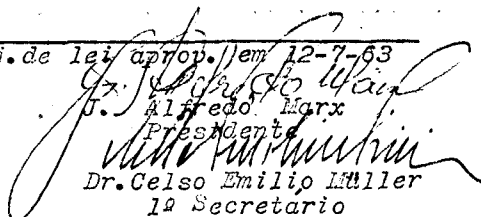 i.de lei aprov. em 12-7-63
J. Alfredo Marx
Presidente
Dr.Celso Emilio Müller
1º Secretario